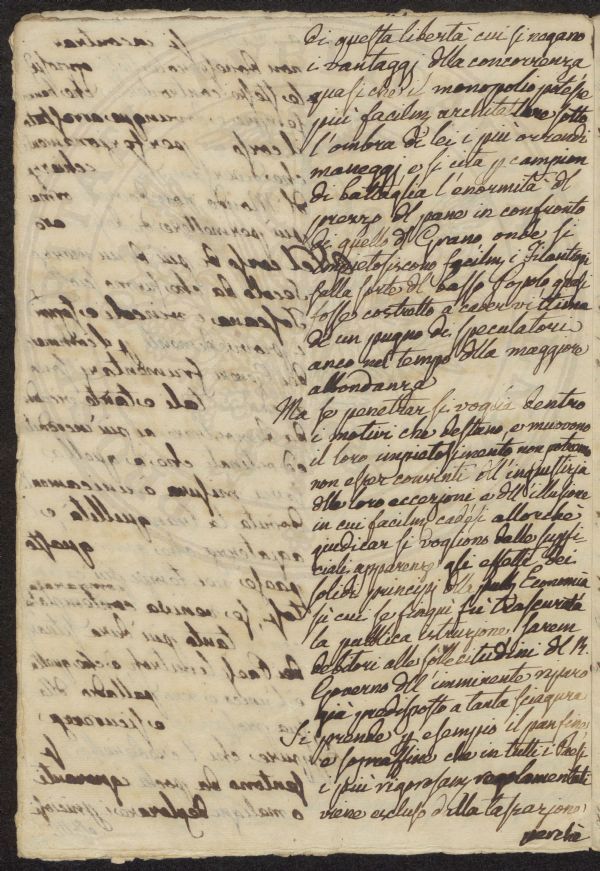 di questa libertà cui si negano
i vantaggi dlla concorrenza
quasiche il monopolio potesse
più facilm architettare sotto
l'ombra di lei i più orrendi
maneggi, e si cita p campion
di battaglia l'enormità dl
prezzo dl pane in confronto
di quello dl Grano, onde si
impietosiscono facilm i Filantropi
sulla sorte dl basso Popolo quasi
fosse costretto a cader vittima
di un pugno di speculatori
anco nel tempo dlla maggiore
abbondanza
Ma se penetrar si voglia dentro
i motivi che destano, e muovono
il loro impietosimento non potremo
non esser convinti dll'ingiustizia
dlle loro eccezioni e dll'illusione
in cui facilm cadesi allorchè
giudicar si vogliono dalle superfi
ciali apparenze gli effetti dei
solidi principj dlla pub. Economia
si cui se finqui fu trascurata
la pubblica istruzione, sarem
debitori alle sollecitudini dl R.
Governo dll'imminente riparo
già predisposto a tanta sciagura
Si prende p esempio il pan fino
e sopraffine che in tutti i Paesi
i più rigorosam regolamentati
viene escluso dalla tassazione
perchè